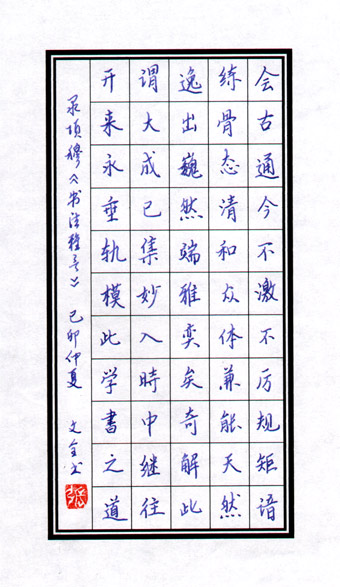 会古通今不激不厉规矩谙
练骨态清和众体兼能天然
逸出巍然端雅奕矣奇解此
谓大成已集妙入時中继往
开来永垂轨模此学書之道
录项穆《书法雅言》 己卯仲夏 文全书